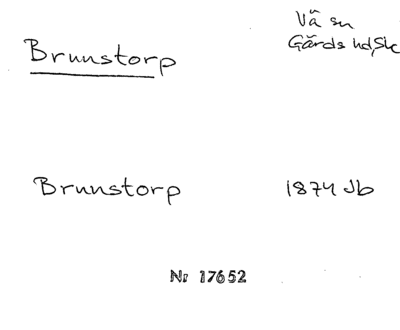 Brunstorp
Vä sn
Gärds hd, Sk
Brunstorp
1874 Jb
Nr 17652